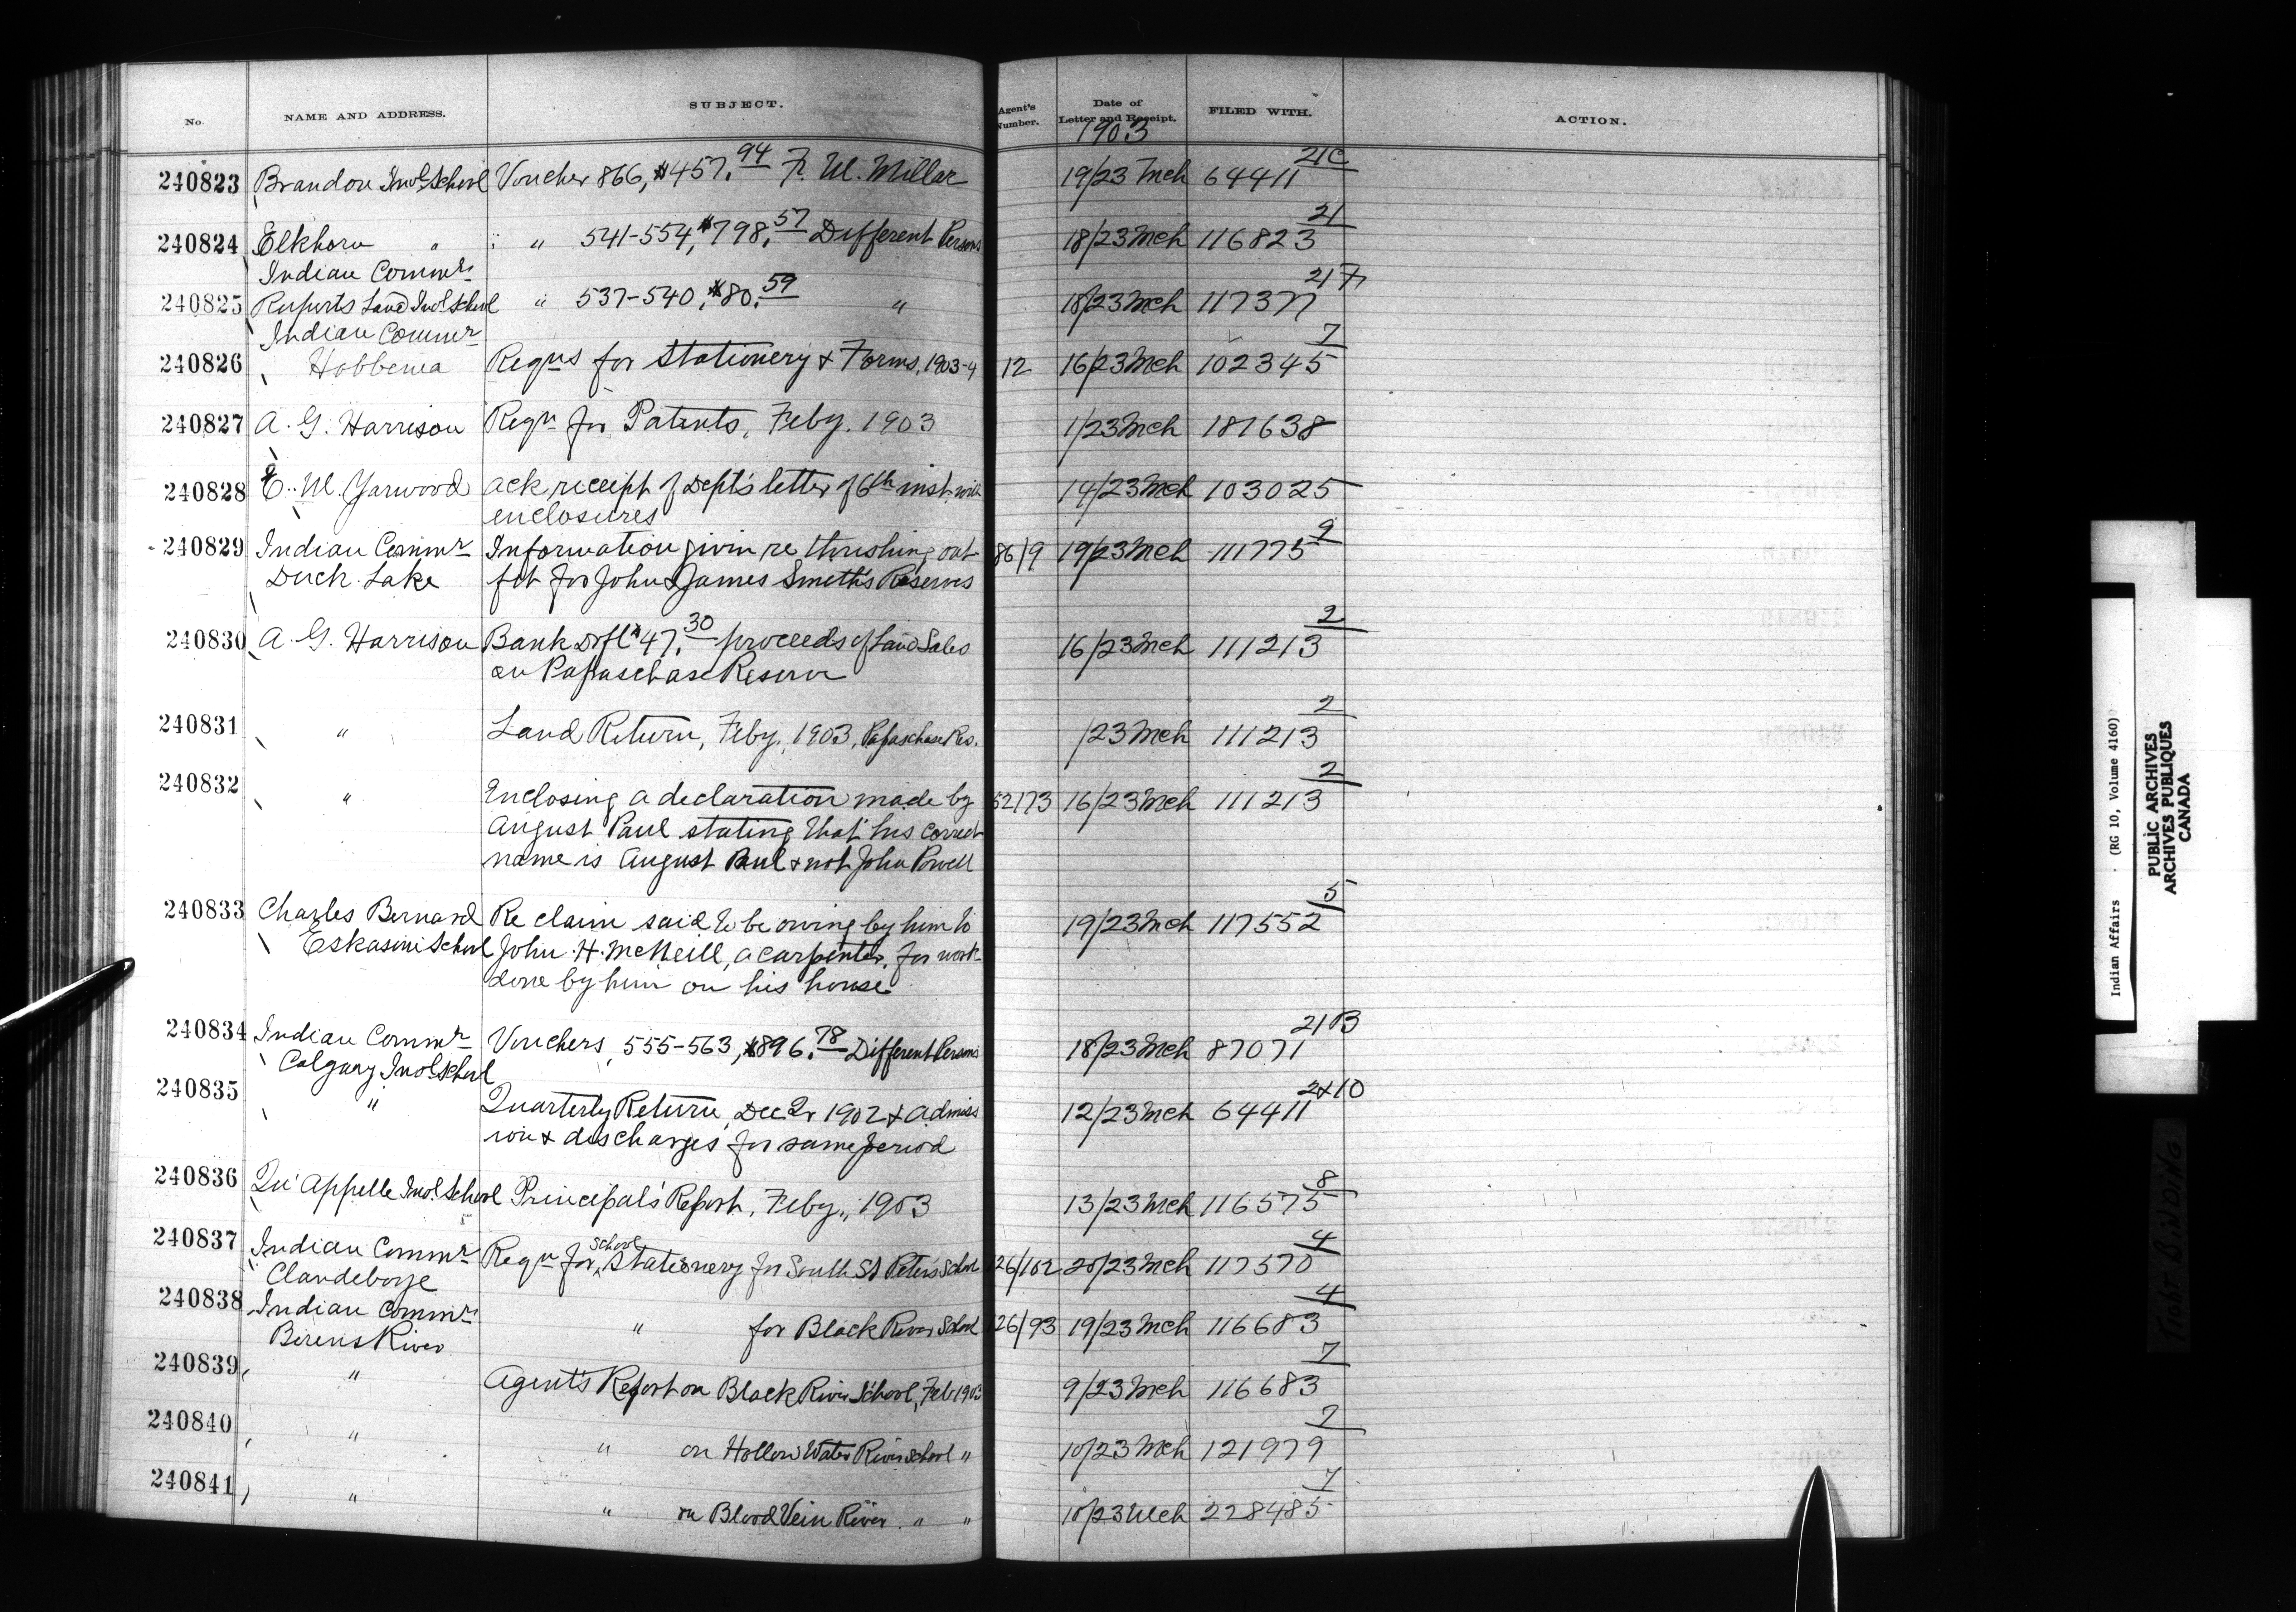 No. NAME AND ADDRESS. SUBJECT. Agent's Number. Date of Letter and Receipt. FILED WITH. ACTION.
1903
240823 Brandon Indl School Voucher 866, $457.94 F. W. Millar 19/23 Mch 64411 21C
240824 Elkhorn " " 541-554, $798.57 Different Persons 18/23 Mch 116823 21
Indian Commr
240825 Ruperts Land Indl School " 537-540, $80.59 " 18/23 Mch 117377 217
Indian Commr
240826 Hobbema Reqns for Stationery & Forms, 1903-4 12 16/23 Mch 102345 7
240827 A. G. Harrison Reqn for Patents, Feby. 1903 1/23 Mch 187638
240828 E. W. Yarwood Ack receipt of Dept's letter of 6th inst with 14/23 Mch 103025
enclosures
240829 Indian Commr Information given re thrashing out- 86/9 19/23 Mch 111775 9
Duck Lake fit for John & James Smith's Reserves
240830 A. G. Harrison Bank Dft $47.30 proceeds of Land Sales 16/23 Mch 111213 2
on Papaschase Reserve
240831 " Land Return, Feby. 1903, Papaschase Res. /23 Mch 111213 2
240832 " Enclosing a declaration made by 52173 16/23 Mch 111213 2
August Paul stating that his correct
name is August Paul & not John Powell
240833 Charles Bernard Re claim said to be owing by him to 19/23 Mch 117552 5
Eskasoni School John H. McNeill, a carpenter, for work
done by him on his house
240834 Indian Commr Vouchers, 555-563, $896.78 Different Persons 18/23 Mch 87071 21B
Calgary Indl School
240835 " Quarterly Return, Dec Qr 1902 & admiss 12/23 Mch 64411 2&10
ion & discharges for same period
240836 Qu'Appelle Indl School Principal's Report, Feby., 1903 13/23 Mch 116575 8
240837 Indian Commr Reqn for School Stationery for South St Peters School 126/102 20/23 Mch 117570 4
Clandeboye
240838 Indian Commr " for Black River School 126/93 19/23 Mch 116683 4
Berens River
240839 " Agent's Report on Black River School, Feb 1903 9/23 Mch 116683 7
240840 " " on Hollow Water River School " 10/23 Mch 121979 7
240841 " " on Blood Vein River " " 10/23 Mch 228485 7
Indian Affairs . (RG 10, Volume 4160)
PUBLIC ARCHIVES
ARCHIVES PUBLIQUES
CANADA
TIGHT BINDING